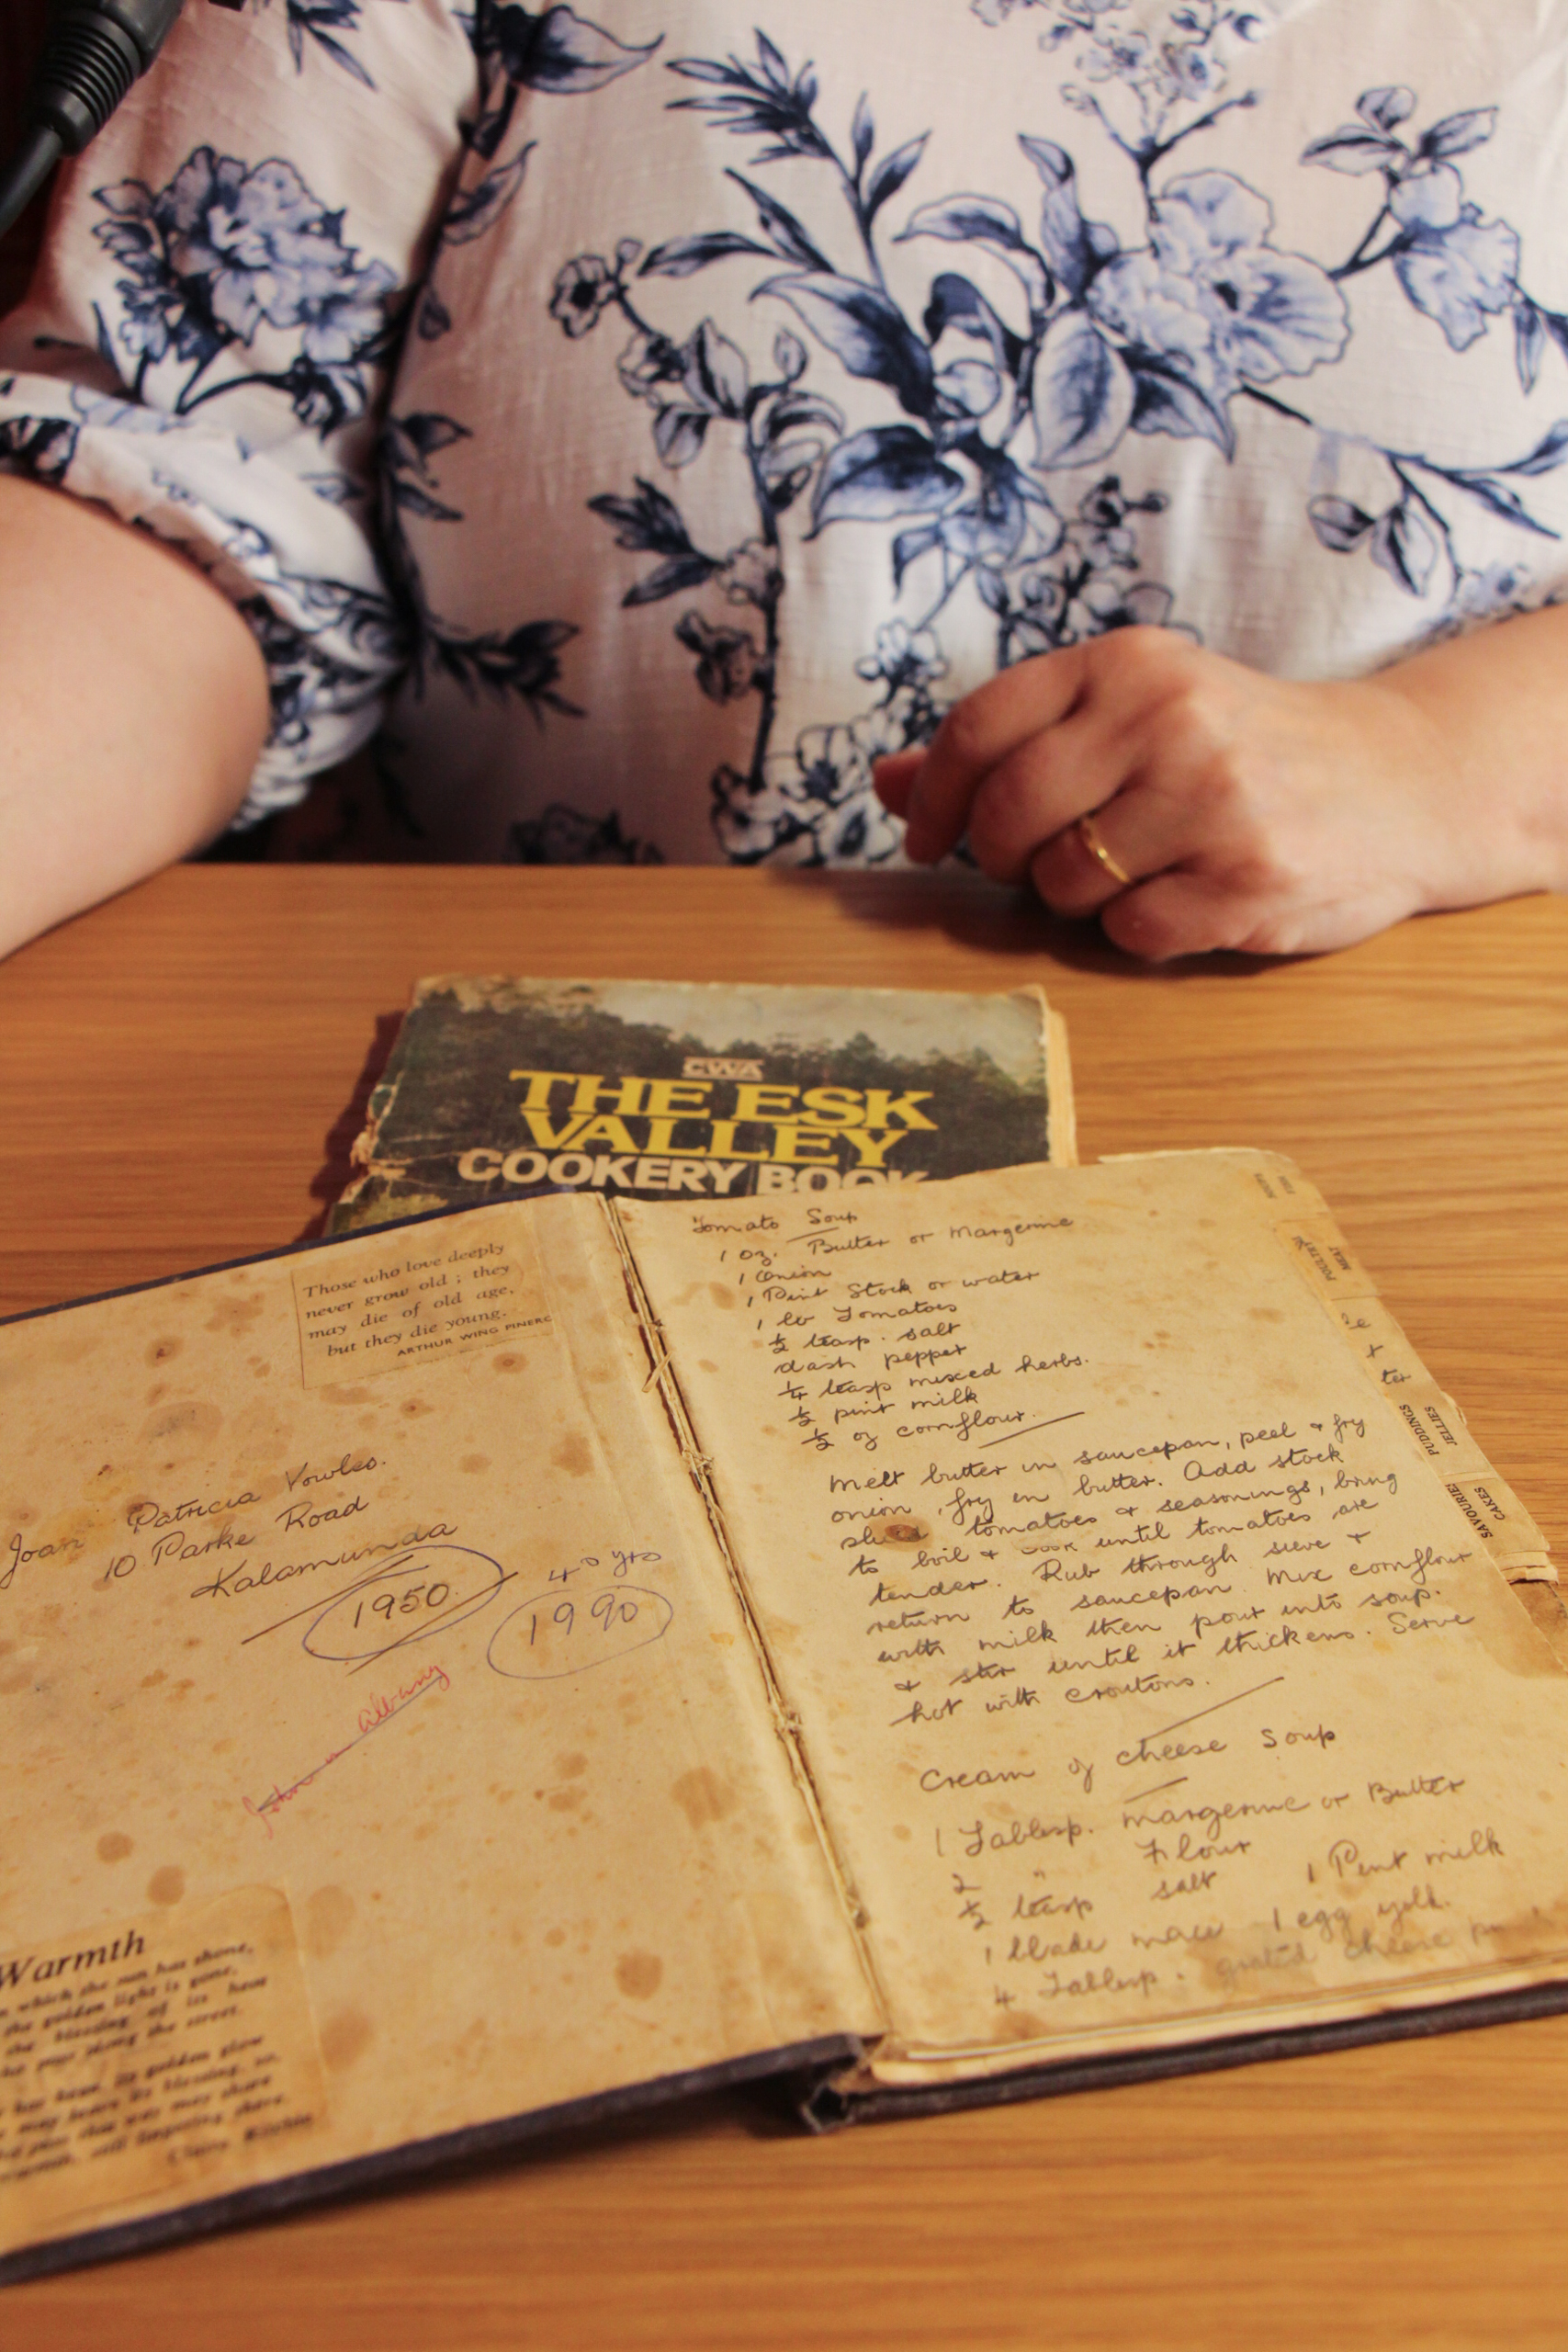 CWA
THE ESK
VALLEY
COOKERY BOOK
Those who love deeply
never grow old ; they
may die of old age,
but they die young.
ARTHUR WING PINERO
Joan Patricia Vowles.
10 Parke Road
Kalamunda
1950.
40 yrs
1990
Albany
Warmth
which the sun has shone,
the golden light is gone,
the blessing of its heat
pass along the street.
golden glow
may leave its blessing, so,
that way may share
still lingering there.
Tomato Soup
1 oz. Butter or Margerine
1 Onion
1 Pint Stock or water
1 lb Tomatoes
½ teasp. salt
dash pepper
¼ teasp mixed herbs.
½ pint milk
½ oz cornflour.
Melt butter in saucepan, peel & fry
onion, fry in butter. Add stock
tomatoes & seasonings, bring
to boil & cook until tomatoes are
tender. Rub through sieve &
return to saucepan. Mix cornflour
with milk then pour into soup.
& stir until it thickens. Serve
hot with croutons.
Cream of Cheese Soup
1 Tablesp. margerine or Butter
2 " Flour
½ teasp salt 1 Pint milk
1 blade mace 1 egg yolk.
4 Tablesp. grated cheese
FISH
MEAT
POULTRY
ce
+
ter
JELLIES
PUDDINGS
CAKES
SAVOURIE